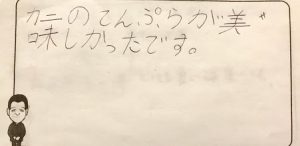 カニのてんぷらが美
味しかったです。